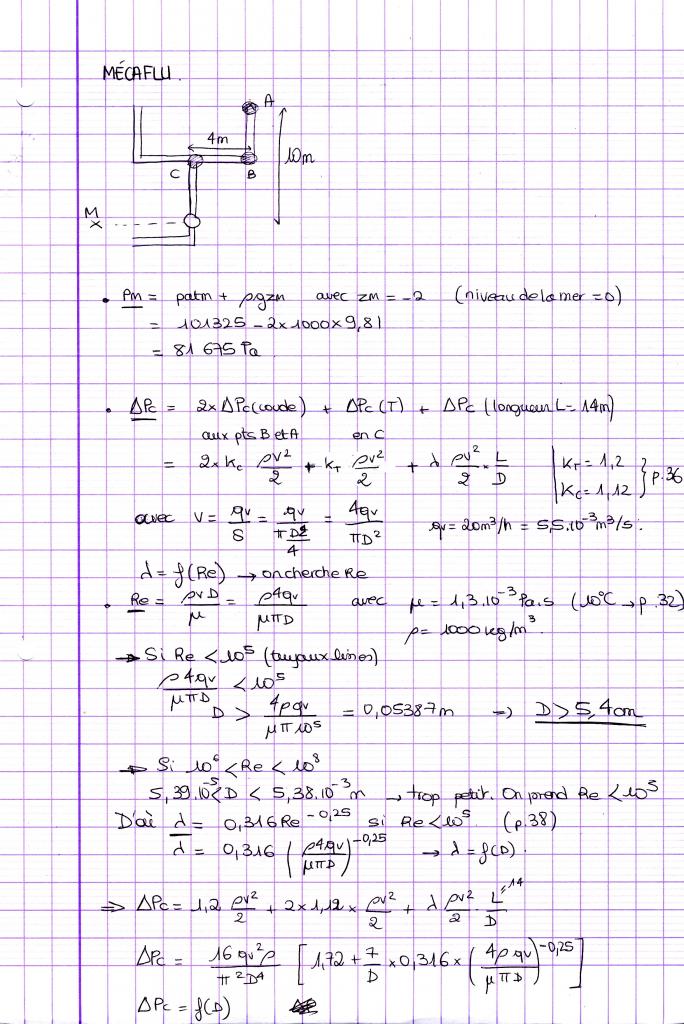 MÉCAFLU.
A
4m
10m
C
B
M
• Pm = patm + ρgzm avec zm = -2 (niveau de la mer = 0)
= 101325 - 2x1000x9,81
= 81 675 Pa
• ΔPc = 2x ΔPc(coude) + ΔPc(T) + ΔPc (longueur L = 14m)
aux pts B et A en C
= 2x Kc ρv²/2 + KT ρv²/2 + λ ρv²/2 x L/D | KT = 1,2
| Kc = 1,12 } p.36
avec V = qv/S = qv/(πD²/4) = 4qv/πD² qv = 20m³/h = 5,5.10⁻³ m³/s.
λ = f(Re) → on cherche Re
• Re = ρvD/μ = ρ4qv/μπD avec μ = 1,3.10⁻³ Pa.s (10°C → p.32)
ρ = 1000 kg/m³.
→ Si Re < 10⁵ (tuyaux lisses)
ρ4qv/μπD < 10⁵
D > 4ρqv/μπ10⁵ = 0,05387m => D > 5,4cm
→ Si 10⁶ < Re < 10⁸
5,39.10⁻⁵ < D < 5,38.10⁻³ m → trop petit. On prend Re < 10⁵
D'où λ = 0,316 Re^-0,25 si Re < 10⁵ (p.38)
λ = 0,316 (ρ4qv/μπD)^-0,25 → λ = f(D).
=> ΔPc = 1,2 ρv²/2 + 2x1,12x ρv²/2 + λ ρv²/2 . L=14/D
ΔPc = 16qv²ρ/π²D⁴ [1,72 + 7/D x 0,316 x (4ρqv/μπD)^-0,25]
ΔPc = f(D)